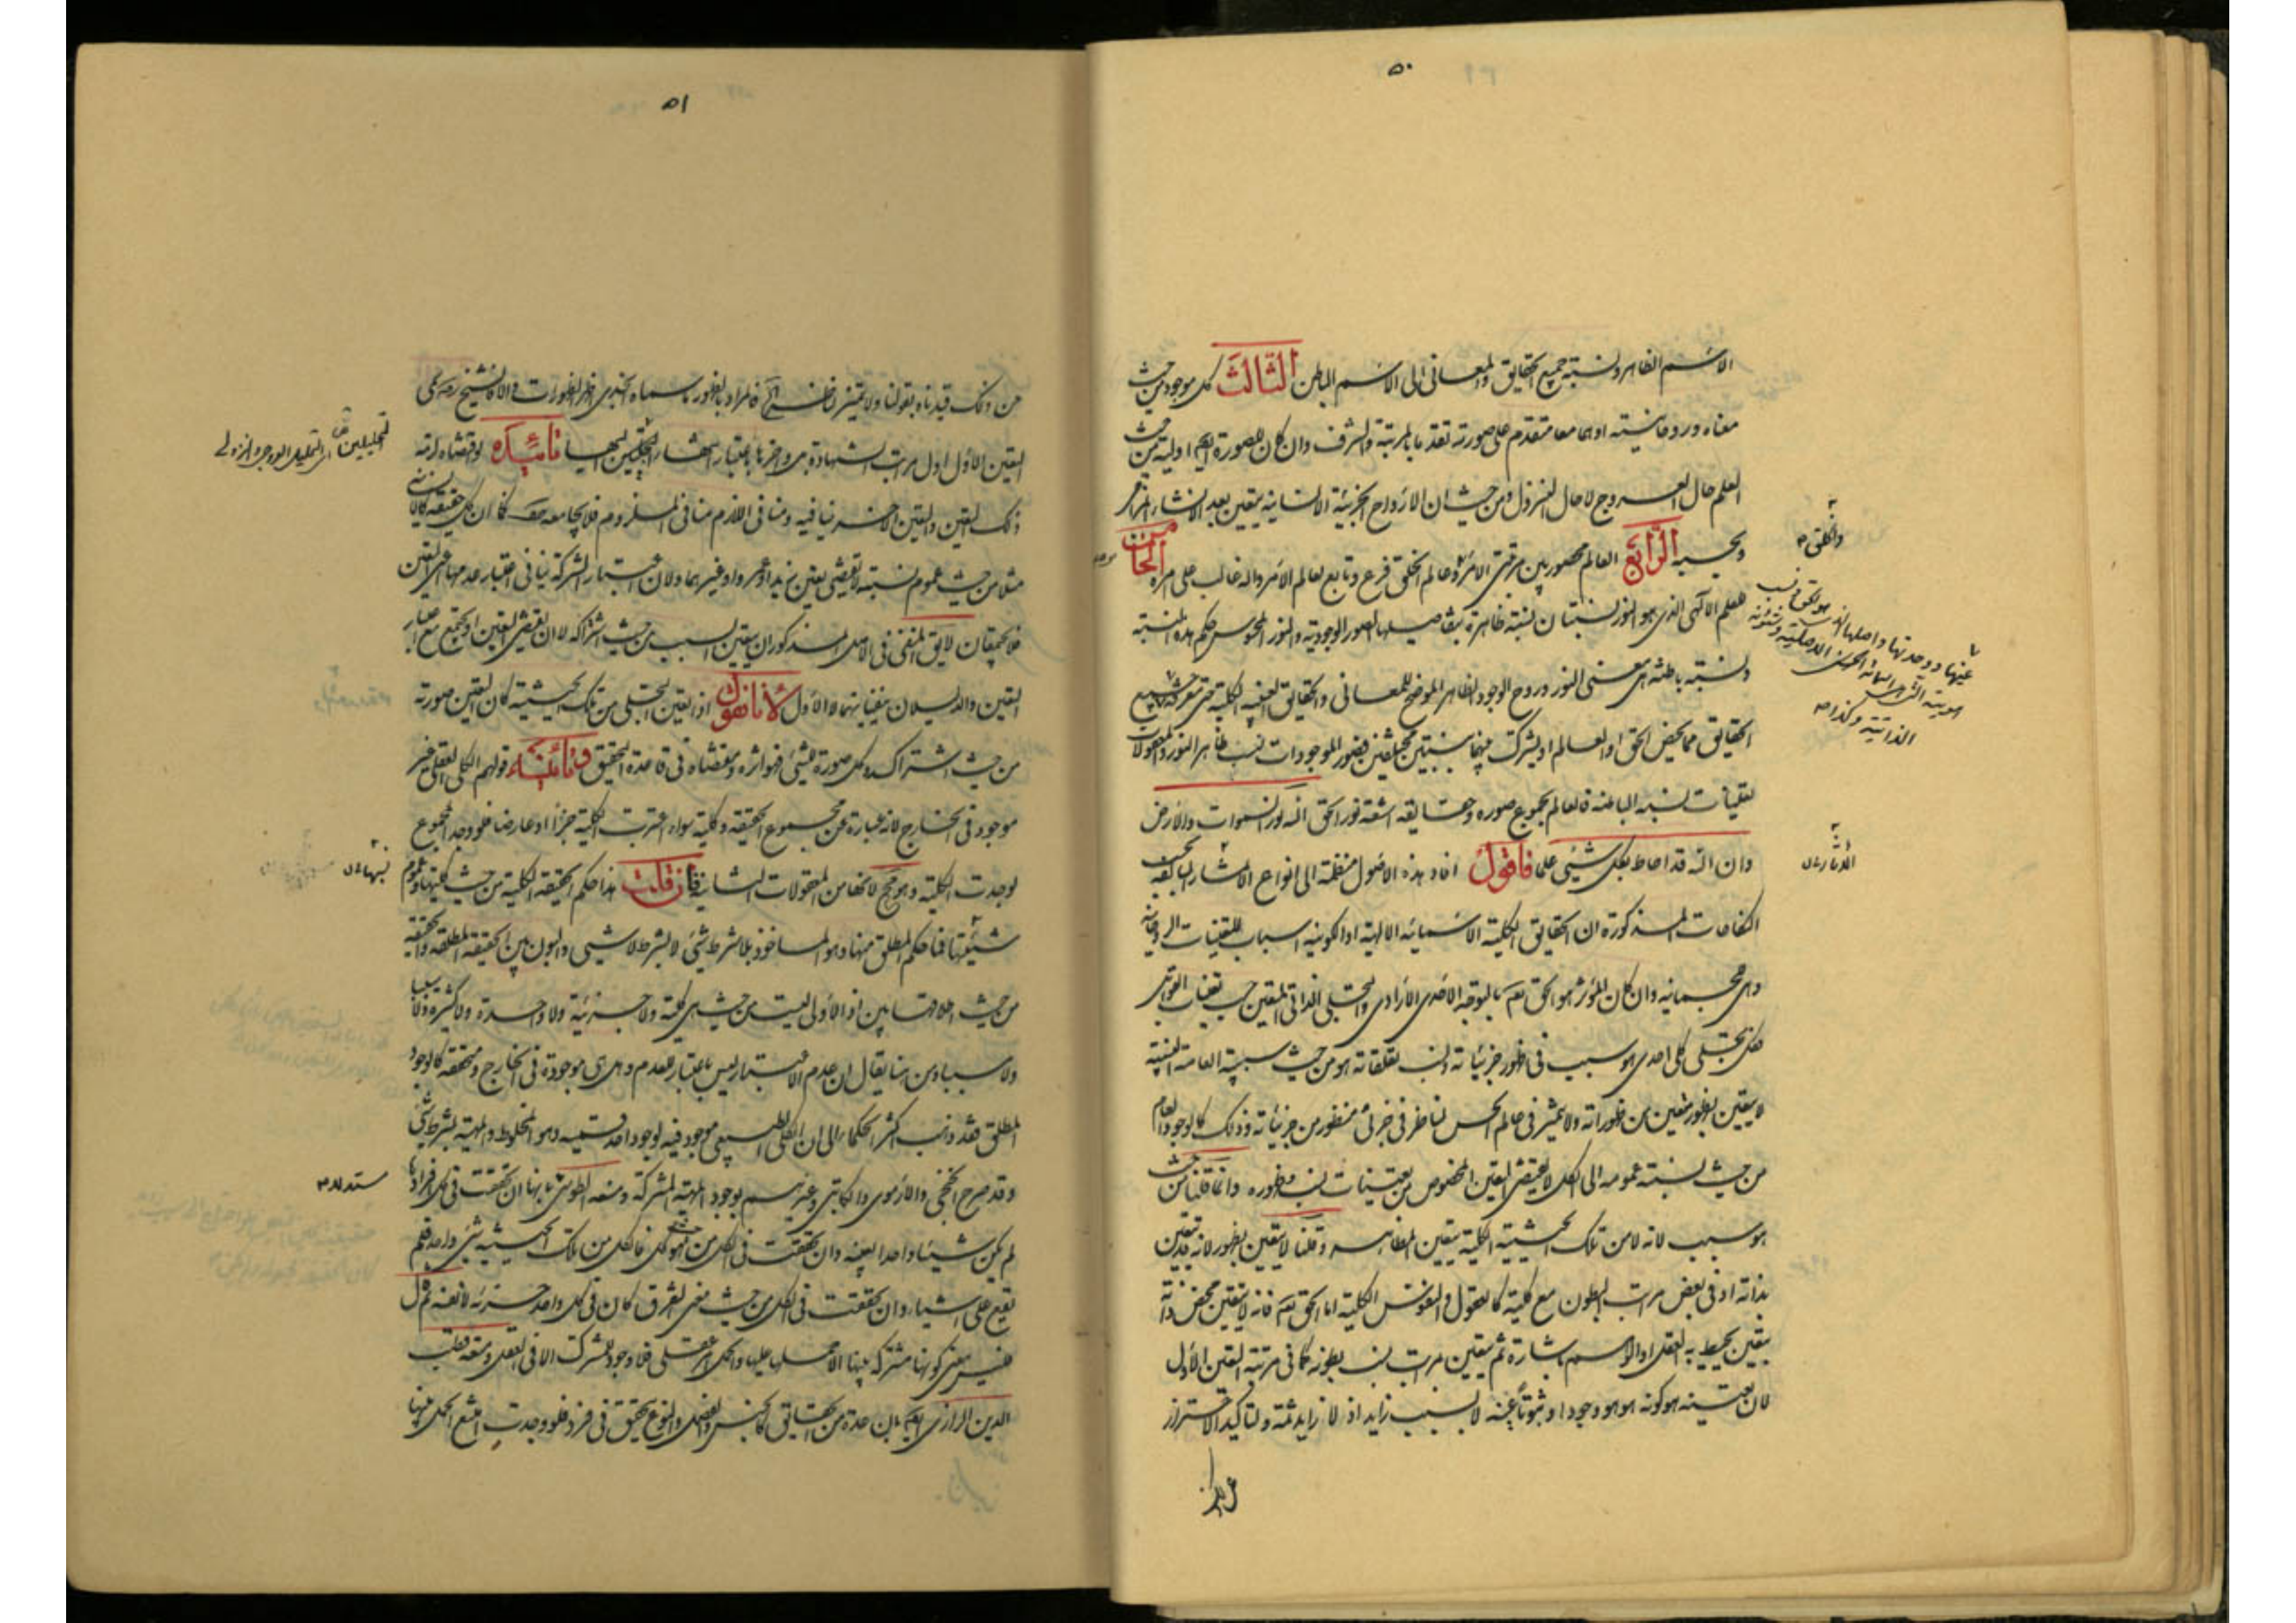 ٥٠
الاسم الظاهر ونسبة جميع الحقايق والمعانى الى الاسم الباطن الثالث كل موجود من حيث
معناه وروحانيته اوهما معا متقدم على صورته تقدما بالمرتبة والشرف وان كان للصورة ايضا اولية من حيث
العلم حال العروج لا حال النزول ومن حيث ان الارواح الجزئية الانسانية يتعين بعد الانشاء المزاجى
وبحسبه الرابع العالم محصور بين مرتبتى الامر وعالم الخلق فرع وتابع لعالم الامر والله غالب على امره الخامس
للعلم الالهى الذى هو النور نسبتان نسبة ظاهرة بتفاصيلها الصور الوجودية والنور المحسوس حكم هذه النسبة
ونسبة باطنة هى معنى النور وروح الوجود الظاهر الموضح للمعانى والحقايق الغيبية الكلية حتى معرفة جميع
الحقايق مما يخص الحق او العالم او يشترك بينهما بنسبتين مختلفتين فصور الموجودات نسب ظاهر النور والمعقولات
تعينات نسبه الباطنة فالعالم بمجموع صوره وحقايقه اشعة نور الحق الله نور السموات والارض
وان الله قد احاط بكل شيئ علما فاقول افاد هذه الاصول منضمة الى انواع الاشارات السابقة
المقامات المذكورة ان الحقايق الكلية الاسمائية الالهية او الكونية اسباب للتعينات الروحانية
والجسمانية وان كان المؤثر هو الحق تعم بالتوجه الاحدى الارادى والتجلى الذاتى المتعين حسب تعينات القوابل
فكل تجلى كلى احدى هو سبب فى ظهور جزئياته ونسب تعلقاته هو من حيث سببيته العامة الغيبية
لا يتعين بظهور متعين من ظهوراته ولا يتميز فى عالم الحس لناظر فى جزئى منظور من جزئياته وذلك كالوجود العام
من حيث نسبة عمومه الى الكل لا يقتضى التعين المخصوص من تعينات نسب ظهوره وانما قلنا من حيث
هو سبب لانه لا من تلك الحيثية الكلية يتعين المظاهر وقلنا لا يتعين بظهور لانه قد يتعين
بذاته او فى بعض مراتب البطون مع كليته كالعقول والنفوس الكلية اما الحق تعم فانه لا يتعين بمحض ذاته
بتعين يحيط به العقل او الوهم باشارة ثم يتعين مراتب نسب بطونه كما فى مرتبة التعين الاول
لان تعينه هو كونه هو هو وجودا وثبوتا عينه لا بسبب زايد اذ لا زايد ثمة ولتاكيد الاحتراز
والخلق
الاشارات
الذاتية وكذا
٥١
من ذلك قيدناه بقولنا ولا يتميز لناظر الخ فالمراد بالظهور ما سماه الجندى ظهر الظهورات والا فالشيخ رضه سمى
التعين الاول اول مراتب الشهادة او اخرها باعتبار انتهاء التجليين اليها تائيده لو اقتضاه لزمه
ذلك التعين والتعين الاخر ينافيه ومنافى اللازم منافى الملزوم فلا يجامعه حقيقة كما ان كل حقيقة كالانسانية
مثلا من حيث عموم نسبته لا تقتضى تعين زيد او عمرو او غيرهما ولان اعتبار الشركة ينافى اعتبار عدمها اعنى التعين
فلا يجتمعان لا يق المنفى فى الاصل المذكور ان يتعين السبب من حيث اشتراكه لا ان يقتضى التعين او يجتمع مع اعتبار
التعين والدليلان ينفيانهما لا الاول لانا نقول اذا تعين التجلى من تلك الحيثية كان التعين صورته
من حيث اشتراكه وكل صورة لشيئ فهو اثره ومقتضاه فى قاعدة التحقيق فائدة قولهم الكلى العقلى غير
موجود فى الخارج لانه عبارة عن مجموع الحقيقة وكليته سواء اعتبرت الكلية جزأ او عارضا فلو وجد المجموع
لوجدت الكلية وهو مح لانها من المعقولات الثانية فان قلت هذا حكم الحقيقة الكلية من حيث كليتها وعموم
شيئيتها فما حكم المطلق منها وهو الماخوذ بلا شرط شيئ لا بشرط لا شيئ والبون بين الحقيقة المطلقة والحقيقة
من حيث اطلاقها بين اذ الاولى ليست من حيث هى كلية ولا جزئية ولا واحدة ولا كثيرة ولا سببا
ولا مسببا ومن هنا يقال ان عدم الاعتبار ليس باعتبار للعدم وهى موجودة فى الخارج ومحققة كالوجود
المطلق فقد ذهب اكثر الحكماء الى ان الكلى الطبيعى موجود فيه لوجود احد قسميه وهو المخلوط والمهية بشرط شيئ
وقد صرح الخنجى والارموى والكاتبى وغيرهم بوجود المهية المشتركة ومنعه الطوسى بانها ان تحققت فى كل افرادها
لم يكن شيئا واحدا بعينه وان تحققت فى الكل من حيث هو كل فالكل من تلك الحيثية شيئ واحد فلم
تقع على اشياء وان تحققت فى الكل من حيث معنى التفرق كان فى كل واحد جزئه لا نفسه ثم قال
فليس معنى كونها مشتركة بينها الا حملها عليها والحمل امر عقلى فلا وجود للمشترك الا فى العقل ومنعه قطب
الدين الرازى ايضا بان عدة من الحقايق كالجنس والفصل والنوع يتحقق فى فرد فلو وجدت امتنع الحمل بينها
مستدلا